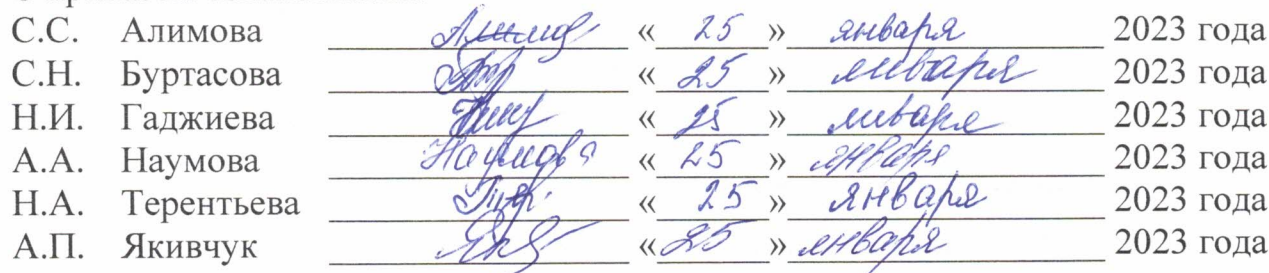 С.С. Алимова Алимов « 25 » января 2023 года
С.Н. Буртасова « 25 » января 2023 года
Н.И. Гаджиева « 25 » января 2023 года
А.А. Наумова Наумова « 25 » января 2023 года
Н.А. Терентьева « 25 » января 2023 года
А.П. Якивчук « 25 » января 2023 года